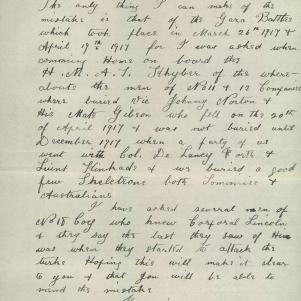 The only thing I can make of the
mistake is that of the Gaza Battles
which took place in March 26th 1917 &
April 19th 1917 for I was asked when
comming Home on board the
H. M. A. T. Khyber of the where-
abouts the men of No 11 & 12 Companies
where buried Vic Johnny Norton &
His Mate Gibson who fell on the 20th
of April 1917 & was not buried until
December 1917 when a party of us
went with Col. De Lancy Forth &
Lieut & we buried a good
few Skeletons both Tommies &
Australians
I have asked several men of
No 18 Coy who knew Corporal Lincoln
& they say the last they saw of Him
was when they started to attack the
turks Hoping this will make it clear
to you & that you will be able to
mend the mistake